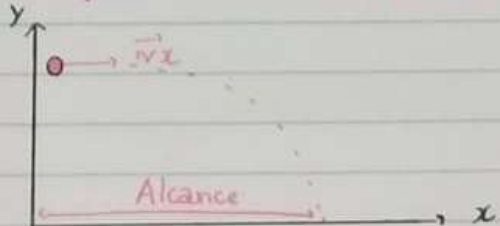 y
vx
Alcance
x